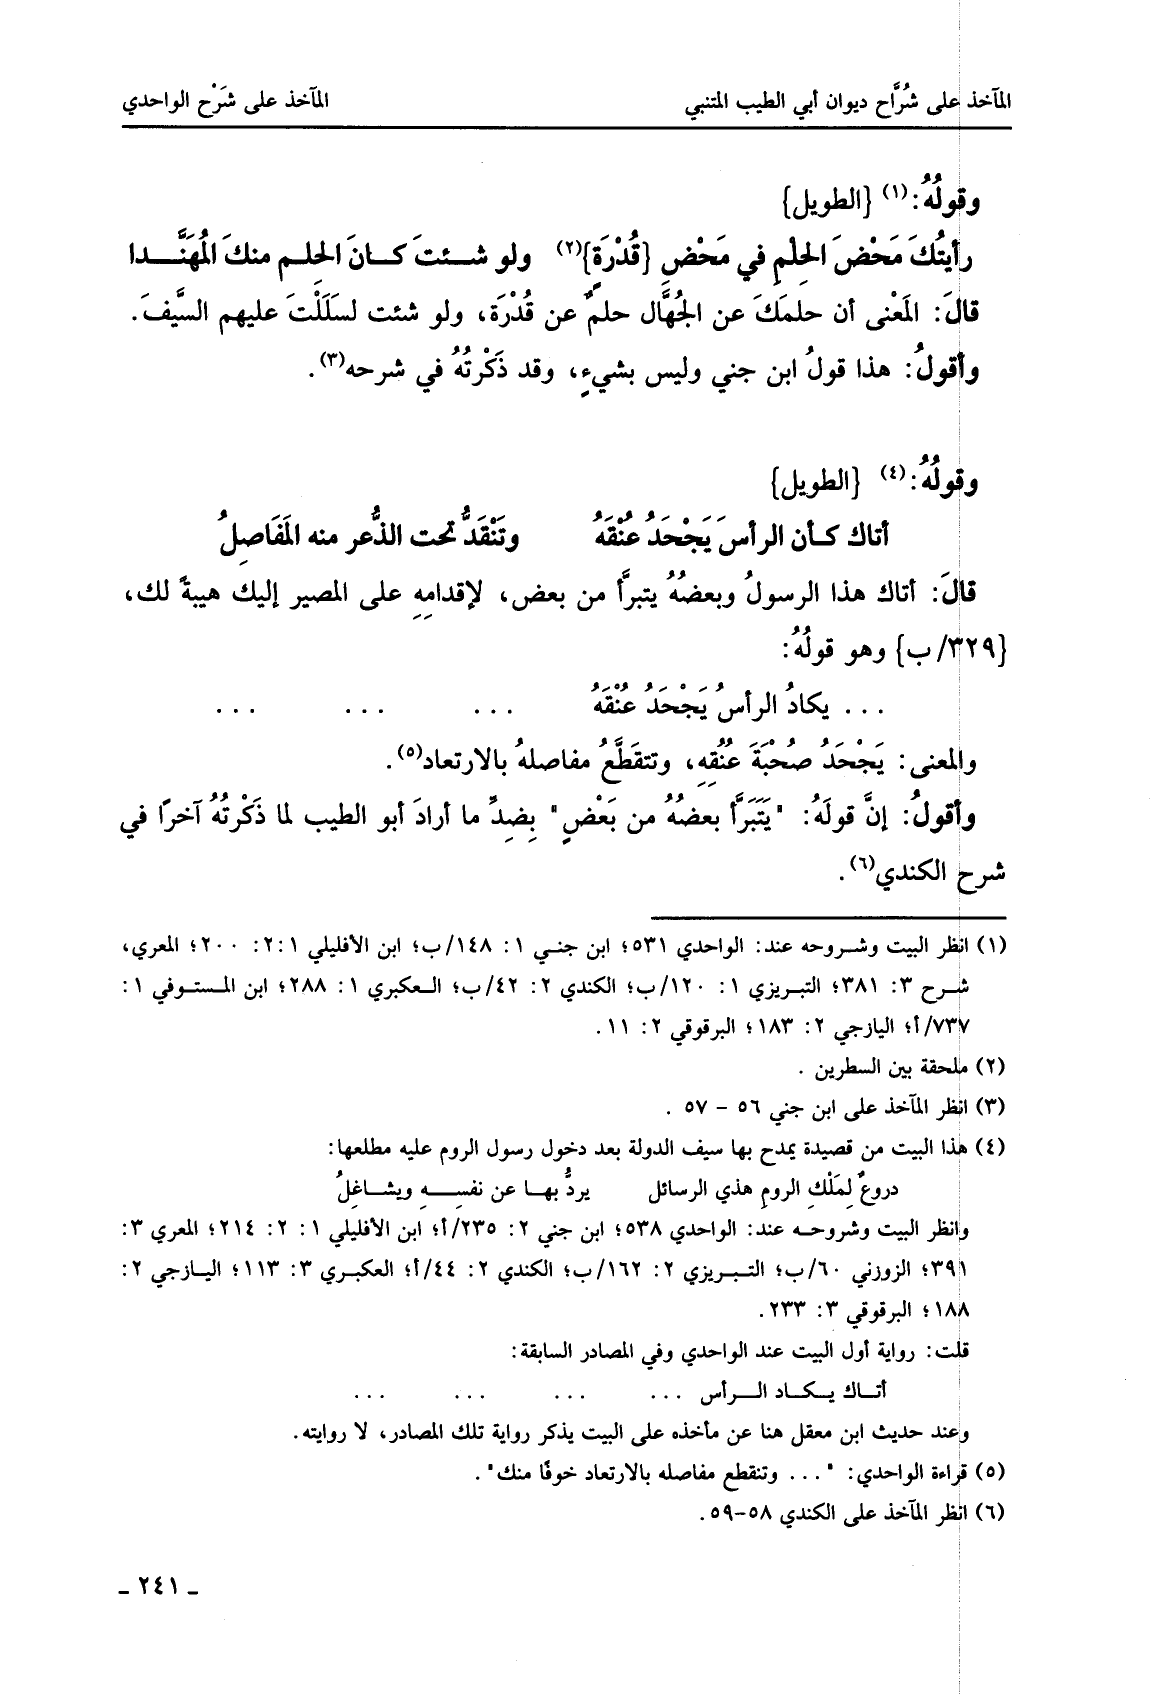 المآخذ على شُرَّاح ديوان أبي الطيب المتنبي المآخذ على شَرْح الواحدي
وقولُهُ:(١) {الطويل}
رأيتُكَ مَحْضَ الحِلْمِ في مَحْضِ {قُدْرَةٍ}(٢) ولو شئتَ كانَ الحِلم منكَ المُهَنَّدا
قالَ: المَعْنى أن حلمَكَ عن الجُهَّال حلمٌ عن قُدْرَة، ولو شئت لسَلَلْتَ عليهم السَّيفَ.
وأقولُ: هذا قولُ ابن جني وليس بشيءٍ، وقد ذَكَرْتُهُ في شرحه(٣).
وقولُهُ:(٤) {الطويل}
أتاك كأن الرأسَ يَجْحَدُ عُنْقَهُ وتَنْقَدُّ تحت الذُّعر منه المَفَاصِلُ
قالَ: أتاك هذا الرسولُ وبعضُهُ يتبرأُ من بعض، لإقدامِهِ على المصير إليك هيبةً لك،
{٣٢٩/ب} وهو قولُهُ:
... يكادُ الرأسُ يَجْحَدُ عُنْقَهُ ... ... ...
والمعنى: يَجْحَدُ صُحْبَةَ عُنُقِهِ، وتتقَطَّعُ مفاصلهُ بالارتعاد(٥).
وأقولُ: إنَّ قولَهُ: "يَتَبَرَّأ بعضُهُ من بَعْضٍ" بِضِدِّ ما أرادَ أبو الطيب لما ذَكَرْتُهُ آخرًا في
شرح الكندي(٦).
(١) انظر البيت وشروحه عند: الواحدي ٥٣١؛ ابن جني ١: ١٤٨/ب؛ ابن الأفليلي ١:٢: ٢٠٠؛ المعري،
شرح ٣: ٣٨١؛ التبريزي ١: ١٢٠/ب؛ الكندي ٢: ٤٢/ب؛ العكبري ١: ٢٨٨؛ ابن المستوفي ١:
٧٣٧/أ؛ اليازجي ٢: ١٨٣؛ البرقوقي ٢: ١١.
(٢) ملحقة بين السطرين .
(٣) انظر المآخذ على ابن جني ٥٦ - ٥٧ .
(٤) هذا البيت من قصيدة يمدح بها سيف الدولة بعد دخول رسول الروم عليه مطلعها:
دروعٌ لِمَلْكِ الرومِ هذي الرسائل يردُّ بها عن نفسِهِ ويشاغِلُ
وانظر البيت وشروحه عند: الواحدي ٥٣٨؛ ابن جني ٢: ٢٣٥/أ؛ ابن الأفليلي ١: ٢: ٢١٤؛ المعري ٣:
٣٩١؛ الزوزني ٦٠/ب؛ التبريزي ٢: ١٦٢/ب؛ الكندي ٢: ٤٤/أ؛ العكبري ٣: ١١٣؛ اليازجي ٢:
١٨٨؛ البرقوقي ٣: ٢٣٣.
قلت: رواية أول البيت عند الواحدي وفي المصادر السابقة:
أتاك يكاد الرأس ... ... ... ...
وعند حديث ابن معقل هنا عن مأخذه على البيت يذكر رواية تلك المصادر، لا روايته.
(٥) قراءة الواحدي: "... وتنقطع مفاصله بالارتعاد خوفًا منك".
(٦) انظر المآخذ على الكندي ٥٨-٥٩.
ـ ٢٤١ ـ